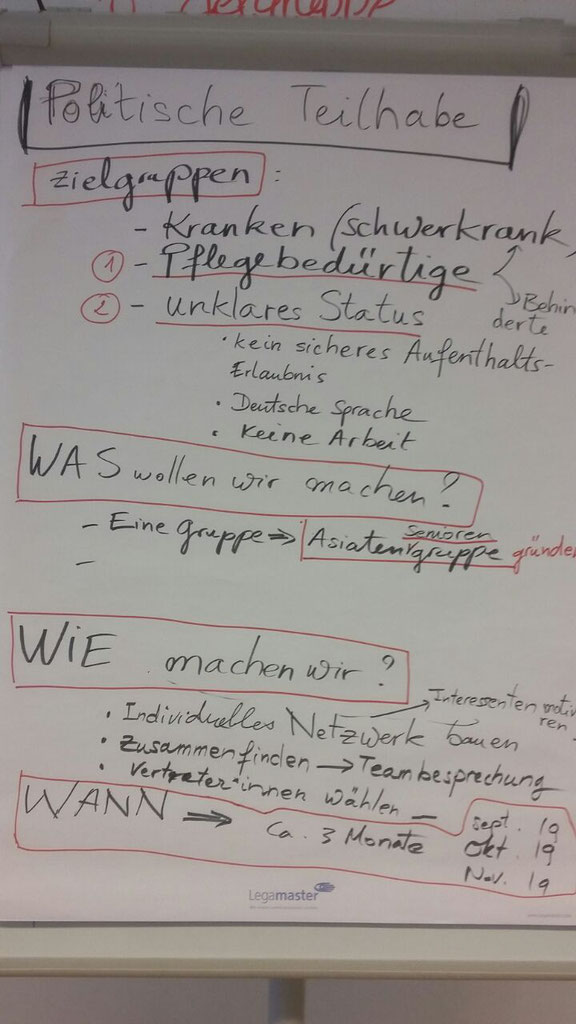 Politische Teilhabe
Zielgruppen :
- Kranken (schwerkrank)
① - Pflegebedürtige
Behin
derte
② - unklares Status
• kein sicheres Aufenthalts-
Erlaubnis
• Deutsche Sprache
• Keine Arbeit
WAS wollen wir machen?
- Eine Gruppe ⇒ Asiaten gruppe gründen
Senioren
-
WiE machen wir?
Interessenten motiv
ren
• Individuelles Netzwerk bauen
• Zusammenfinden → Teambesprechung
• Vertreter*innen wählen -
WANN ⇒ Ca. 3 Monate
Sept. 19
Okt. 19
Nov. 19
Legamaster